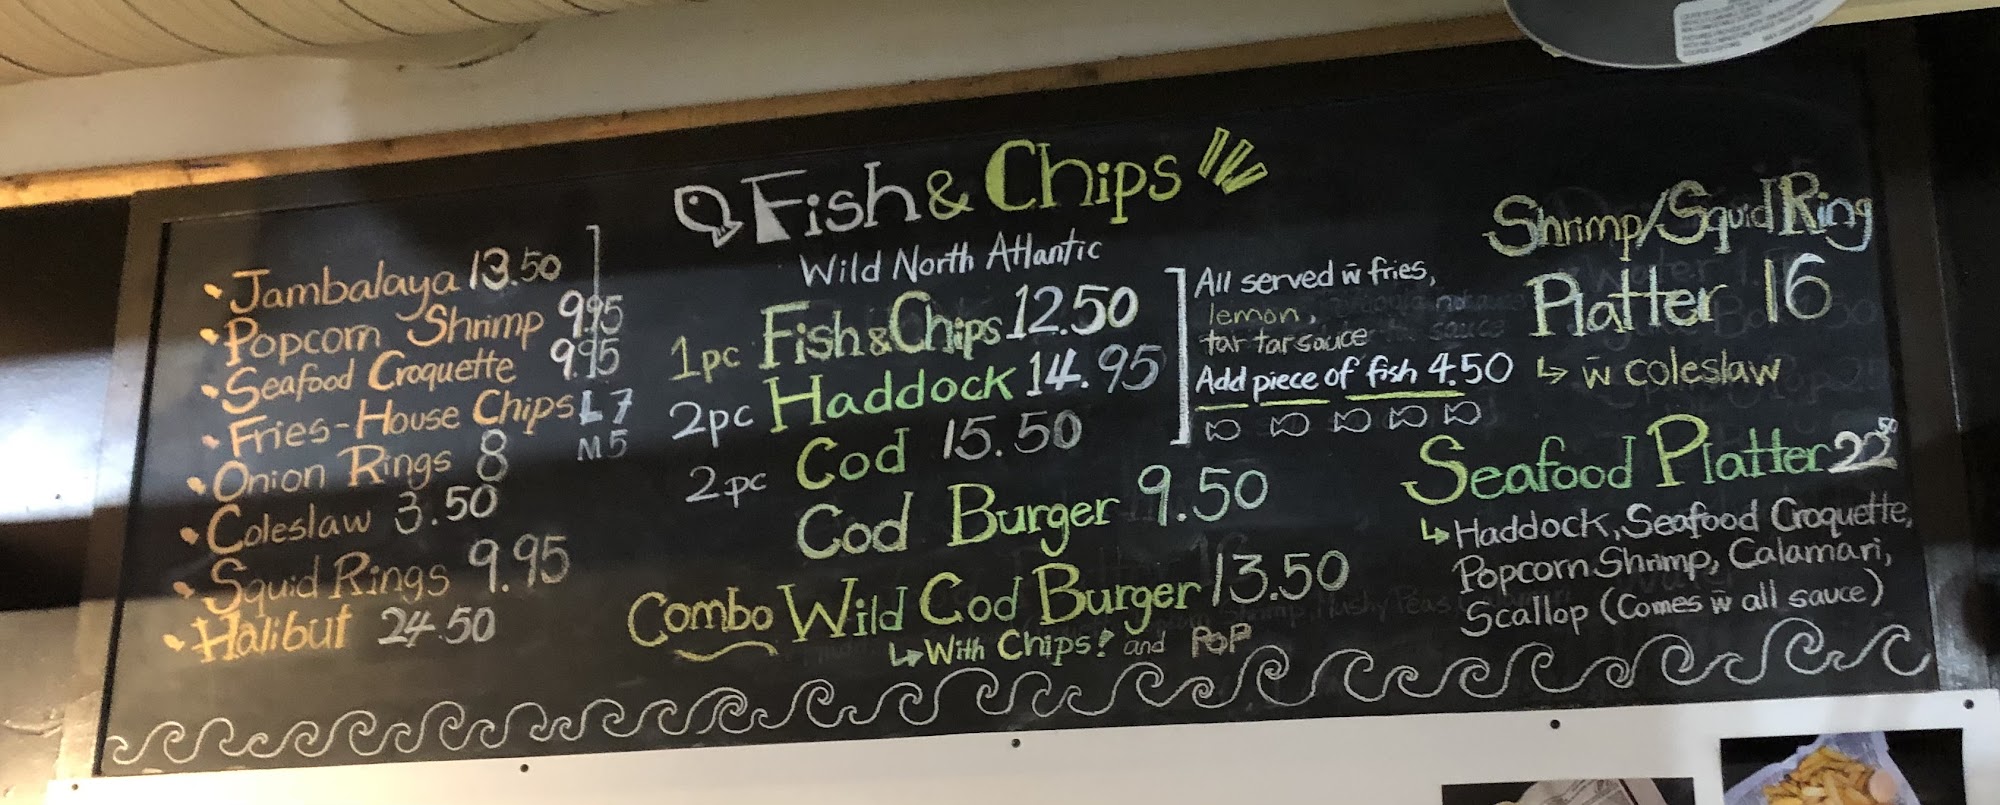 • Jambalaya 13.50
• Popcorn Shrimp 9.95
• Seafood Croquette 9.95
• Fries-House Chips L 7
M 5
• Onion Rings 8
• Coleslaw 3.50
• Squid Rings 9.95
• Halibut 24.50
Fish & Chips
Wild North Atlantic
1pc Fish & Chips 12.50
2pc Haddock 14.95
2pc Cod 15.50
Cod Burger 9.50
Combo Wild Cod Burger 13.50
↳ With Chips! and POP
All served w̄ fries,
lemon,
tar tar sauce
Add piece of fish 4.50
Shrimp/Squid Ring
Platter 16
↳ w̄ coleslaw
Seafood Platter 22⁵⁰
↳ Haddock, Seafood Croquette,
Popcorn Shrimp, Calamari,
Scallop (Comes w̄ all sauce)